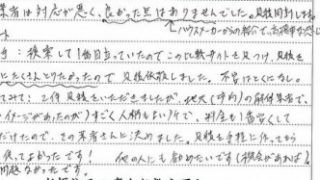 業者は対応が悪く、良かった点はありませんでした。見積同封しま
ハウスメーカーからの紹介で、
手：検索して1番目立っていたのでこの比較サイトを見つけ、見積を
にたくさんとりたかったので見積依頼しました。不安はとくになし。
てみて：2件見積をいただきましたが、地元(市内)の解体業者で、
イメージがあったのが、すごく人柄もよい所で、料金も1番安くして
だけたので、その業者さんに決めました。見積を手軽に
使ってよかったです！ 他の人にも勧めたいです(機会があれば)
問題なかったです。